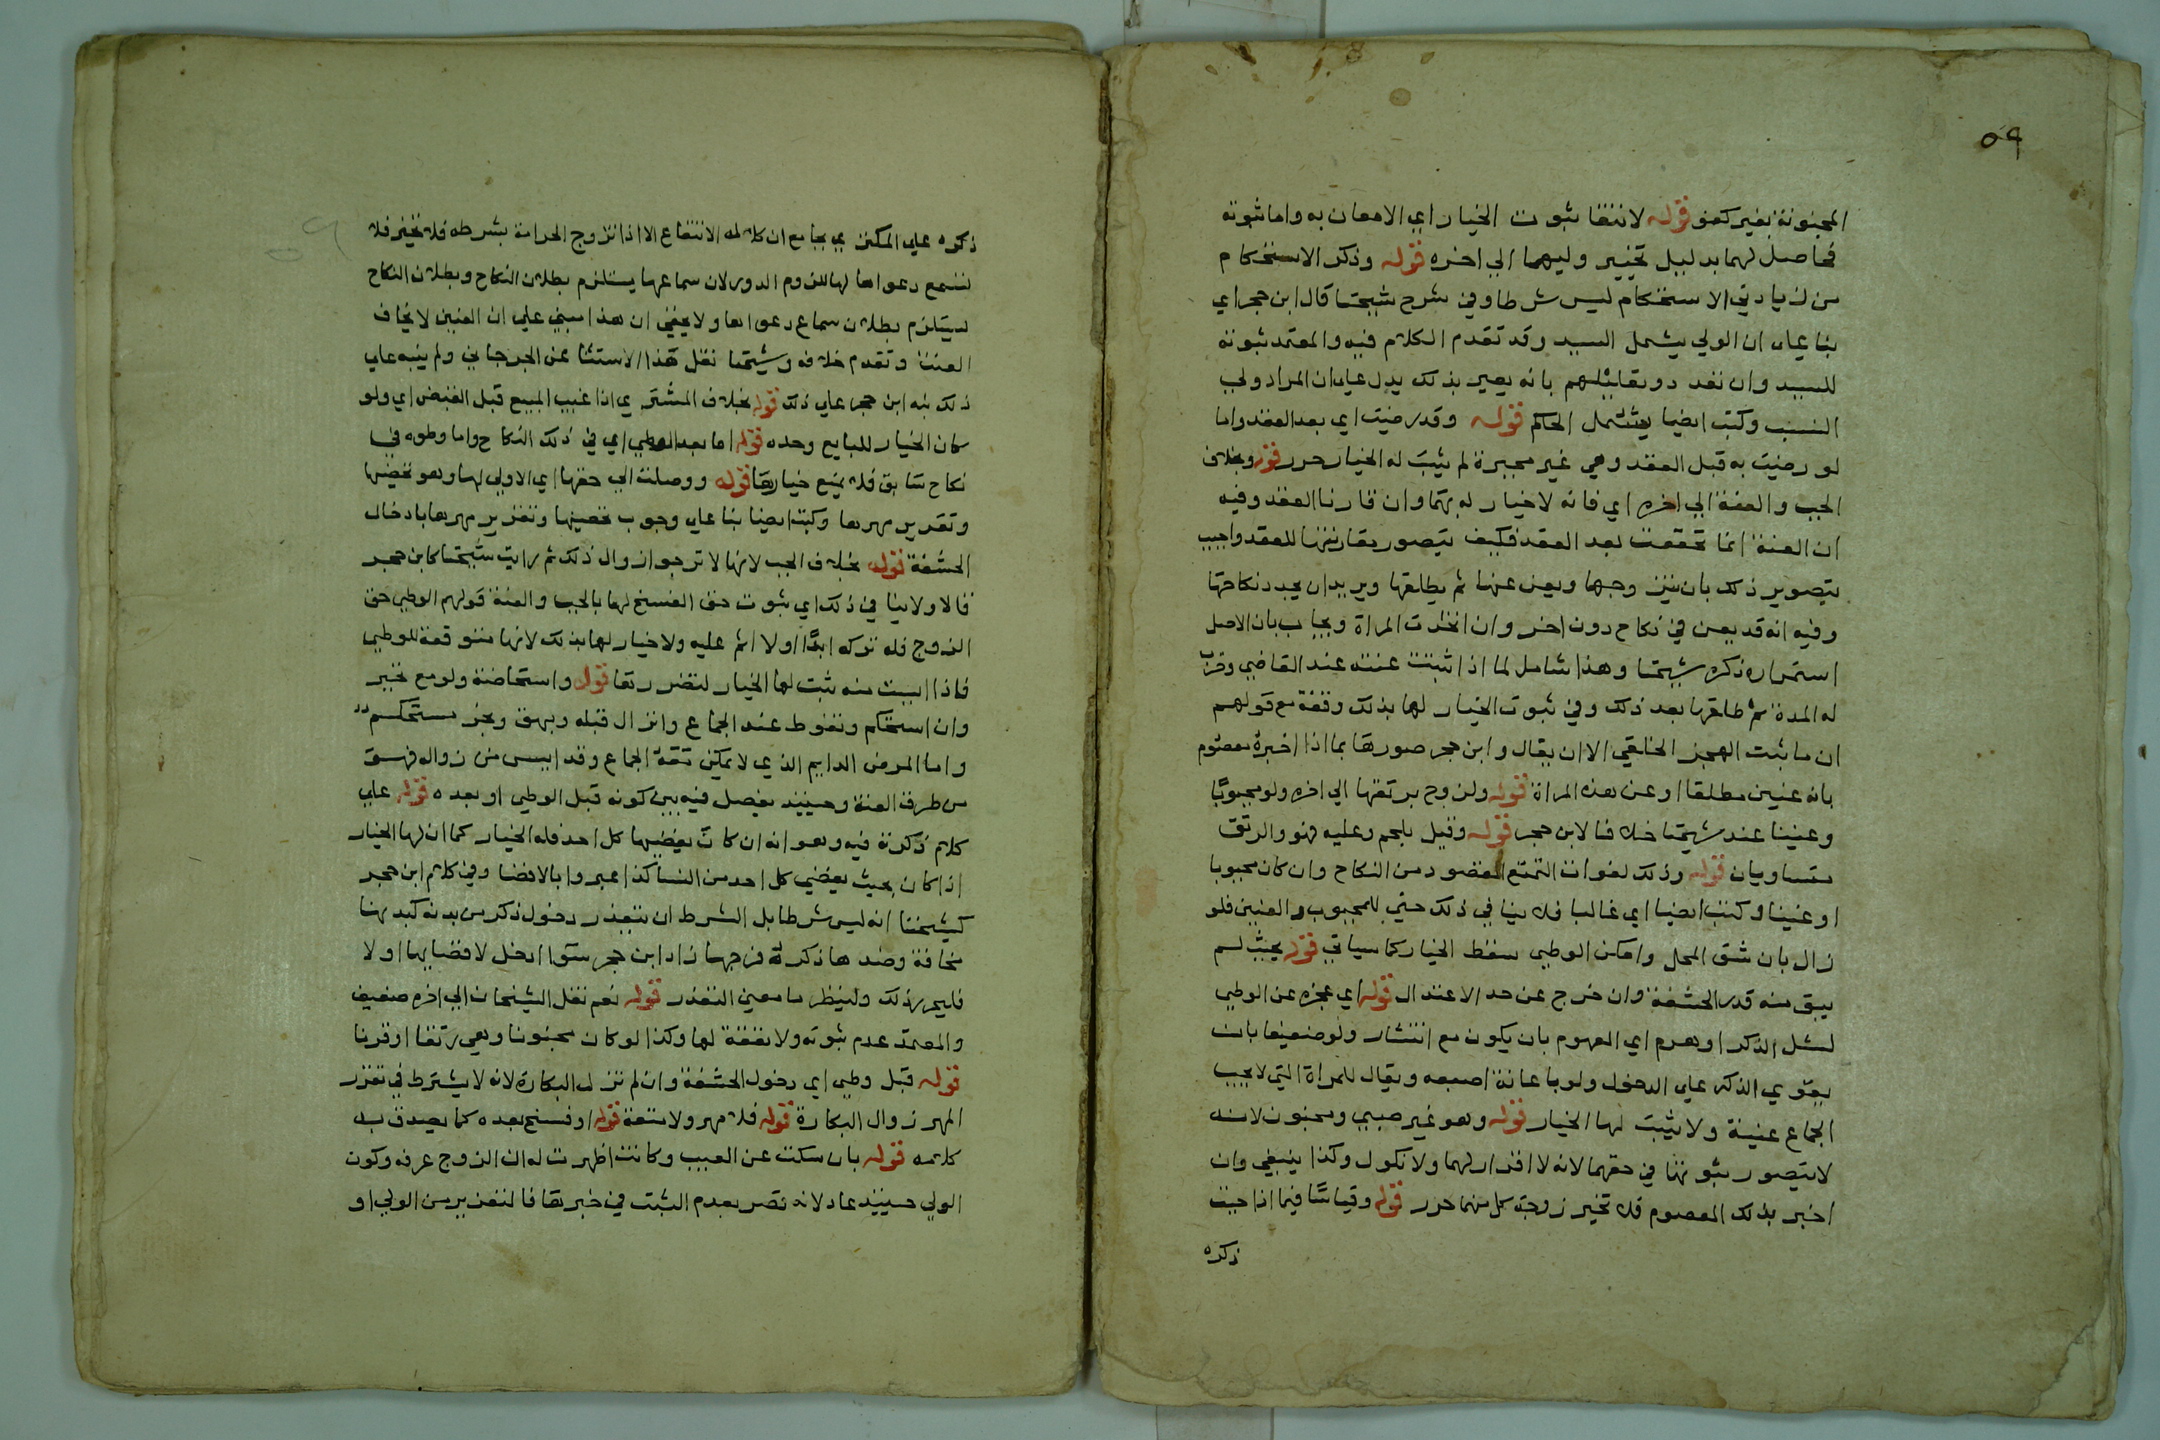 ٥٩
المجنونة بغير كفو قوله لانتفا ثبوت الخيار اي الامعان به واما ثبوته
فحاصل لهما بدليل تخيير وليهما الي اخره قوله وذكر الاستحكام
من زيادتي الاستحكام ليس شرطا وفي شرح شيخنا قال ابن حجر اي
بنا علي ان الولي يشمل السيد وقد تقدم الكلام فيه والمعتمد ثبوته
للسيد وان بعد ومقابلتهم بانه يعير بذلك يدل علي ان المراد ولي
النسب وكتب ايضا يشمل الحاكم قوله وقد رضيت اي بعد العقد واما
لو رضيت به قبل العقد وهي غير مجبرة لم يثبت له الخيار حرر قوله وبخلاف
الجب والعنة الي اخره اي فانه لا خيار له بهما وان قارنا العقد وفيه
ان العنة انما تحققت بعد العقد فكيف يتصور مقارنتها للعقد واجيب
بتصوير ذلك بان يتزوجها ويعن عنها ثم يطلقها ويريد ان يجدد نكاحها
وفيه انه قد يعن في نكاح دون اخر وان اتحدت المراة ويجاب بان الاصل
استمراره ذكره شيخنا وهذا شامل لما اذا ثبتت عنته عند القاضي وضرب
له المدة ثم طلقها بعد ذلك وفي ثبوت الخيار لها بذلك وقفة مع قولهم
ان ما يثبت العجز الخلقي الا ان يقال وابن حجر صورها بما اذا اخبره معصوم
بانه عنين مطلقا او عن هذه المراة قوله ولزوج برتقها الي اخره ولو مجبوبا
وعنينا عند شيخنا خلافا لابن حجر قوله وقيل بلحم وعليه فهو والرتق
متساويان قوله وذلك لفوات التمتع المقصود من النكاح وان كان مجبوبا
او عنينا وكتب ايضا اي غالبا فلا ينافي ذلك حتي للمجبوب والعنين فلو
زال بان شق المحل وامكن الوطي سقط الخيار كما سياتي قوله بحيث لم
يبق منه قدر الحشفة وان خرج عن حد الاعتدال قوله اي عجزه عن الوطي
لشلل الذكر او هرم اي الهرم بان يكون مع انتشار ولو ضعيفا بان
يقوي الذكر علي الدخول ولو باعانة اصبعه ويقال للمراة التي لا تحب
الجماع عنينة ولا يثبت لها الخيار قوله وهو غير صبي ومجنون لانه
لا يتصور ثبوتها في حقهما لانه لا اقرار لهما ولا نكول وكذا ينبغي وان
اخبر بذلك المعصوم فلا تخير زوجة كل منهما حرر قوله وقياسا فيما اذا جبت
ذكره
ذكره علي المكتري بجامع ان كلا له الانتفاع الا اذا تزوج الحرامة بشرطه فلا تخير فلا
تسمع دعواها لها للزوم الدور لان سماعها يستلزم بطلان النكاح وبطلان النكاح
يستلزم بطلان سماع دعواها ولا يخفي ان هذا مبني علي ان العنين لا يخاف
العنت وتقدم خلافه وشيخنا نقل هذا الاستثنا عن الجرجاني ولم ينبه علي
ذلك نبه ابن حجر علي ذلك قوله بخلاف المشتري اذا عيب المبيع قبل القبض اي ولو
كان الخيار للبايع وحده قوله اما بعد الوطي اي في ذلك النكاح واما وطوه في
نكاح سابق فلا يمنع خيارها قوله ووصلت الي حقها اي الاولي لها وهو تحضنها
وتقرير مهرها وكتب ايضا بنا علي وجوب تحصينها وتقرير مهرها بادخال
الحشفة قوله بخلاف الجب لانها لا ترجوا زوال ذلك ثم رايت شيخنا كابن حجر
قالا ولا ينافي ذلك اي ثبوت حق الفسخ لها بالجب والعنة قولهم الوطي حق
الزوج فله تركه ابدا ولا اثم عليه ولا خيار لها بذلك لانها متوقعة للوطي
فاذا ايست منه ثبت لها الخيار لتضررها قوله واستحاضة ولو مع تحير
وان استحكم وتغوط عند الجماع وانزال قبله وبهق وبخر مستحكم
واما المرض الدايم الذي لا يمكن معه الجماع وقد ايس من زواله فهو
من طرق العنة وحينيذ يفصل فيه بين كونه قبل الوطي او بعده قوله علي
كلام ذكرته فيه وهو انه ان كان يفضيها كل احد فله الخيار كما ان لها الخيار
اذا كان بحيث يفضي كل احد من النسا كذا عبروا بالافضا وفي كلام ابن حجر
كشيخنا انه ليس شرطا بل الشرط ان يتعذر دخول ذكر من بدنه كبدنها
نحافة وضدها ذكره فرجها زاد ابن حجر سوا ادخل لافضايها او لا
فليحرر ذلك ولينظر ما معني التعذر قوله نعم نقل الشيخان الي اخره ضعيف
والمعتمد عدم ثبوته ولا نفقة لها وكذا لو كان مجنونا وهي رتقا او قرنا
قوله قبل وطي اي دخول الحشفة وان لم تزل البكارة لانه لا يشترط في تقرر
المهر زوال البكارة قوله فلا مهر ولا متعة قوله او فسخ بعده كما يصدق به
كلامه قوله بان سكتت عن العيب وكانت اظهرت له ان الزوج عرفه وكون
الولي حينيذ عاد لانه تقصر بعدم الثبت في خبرها فالتغرير من الولي او